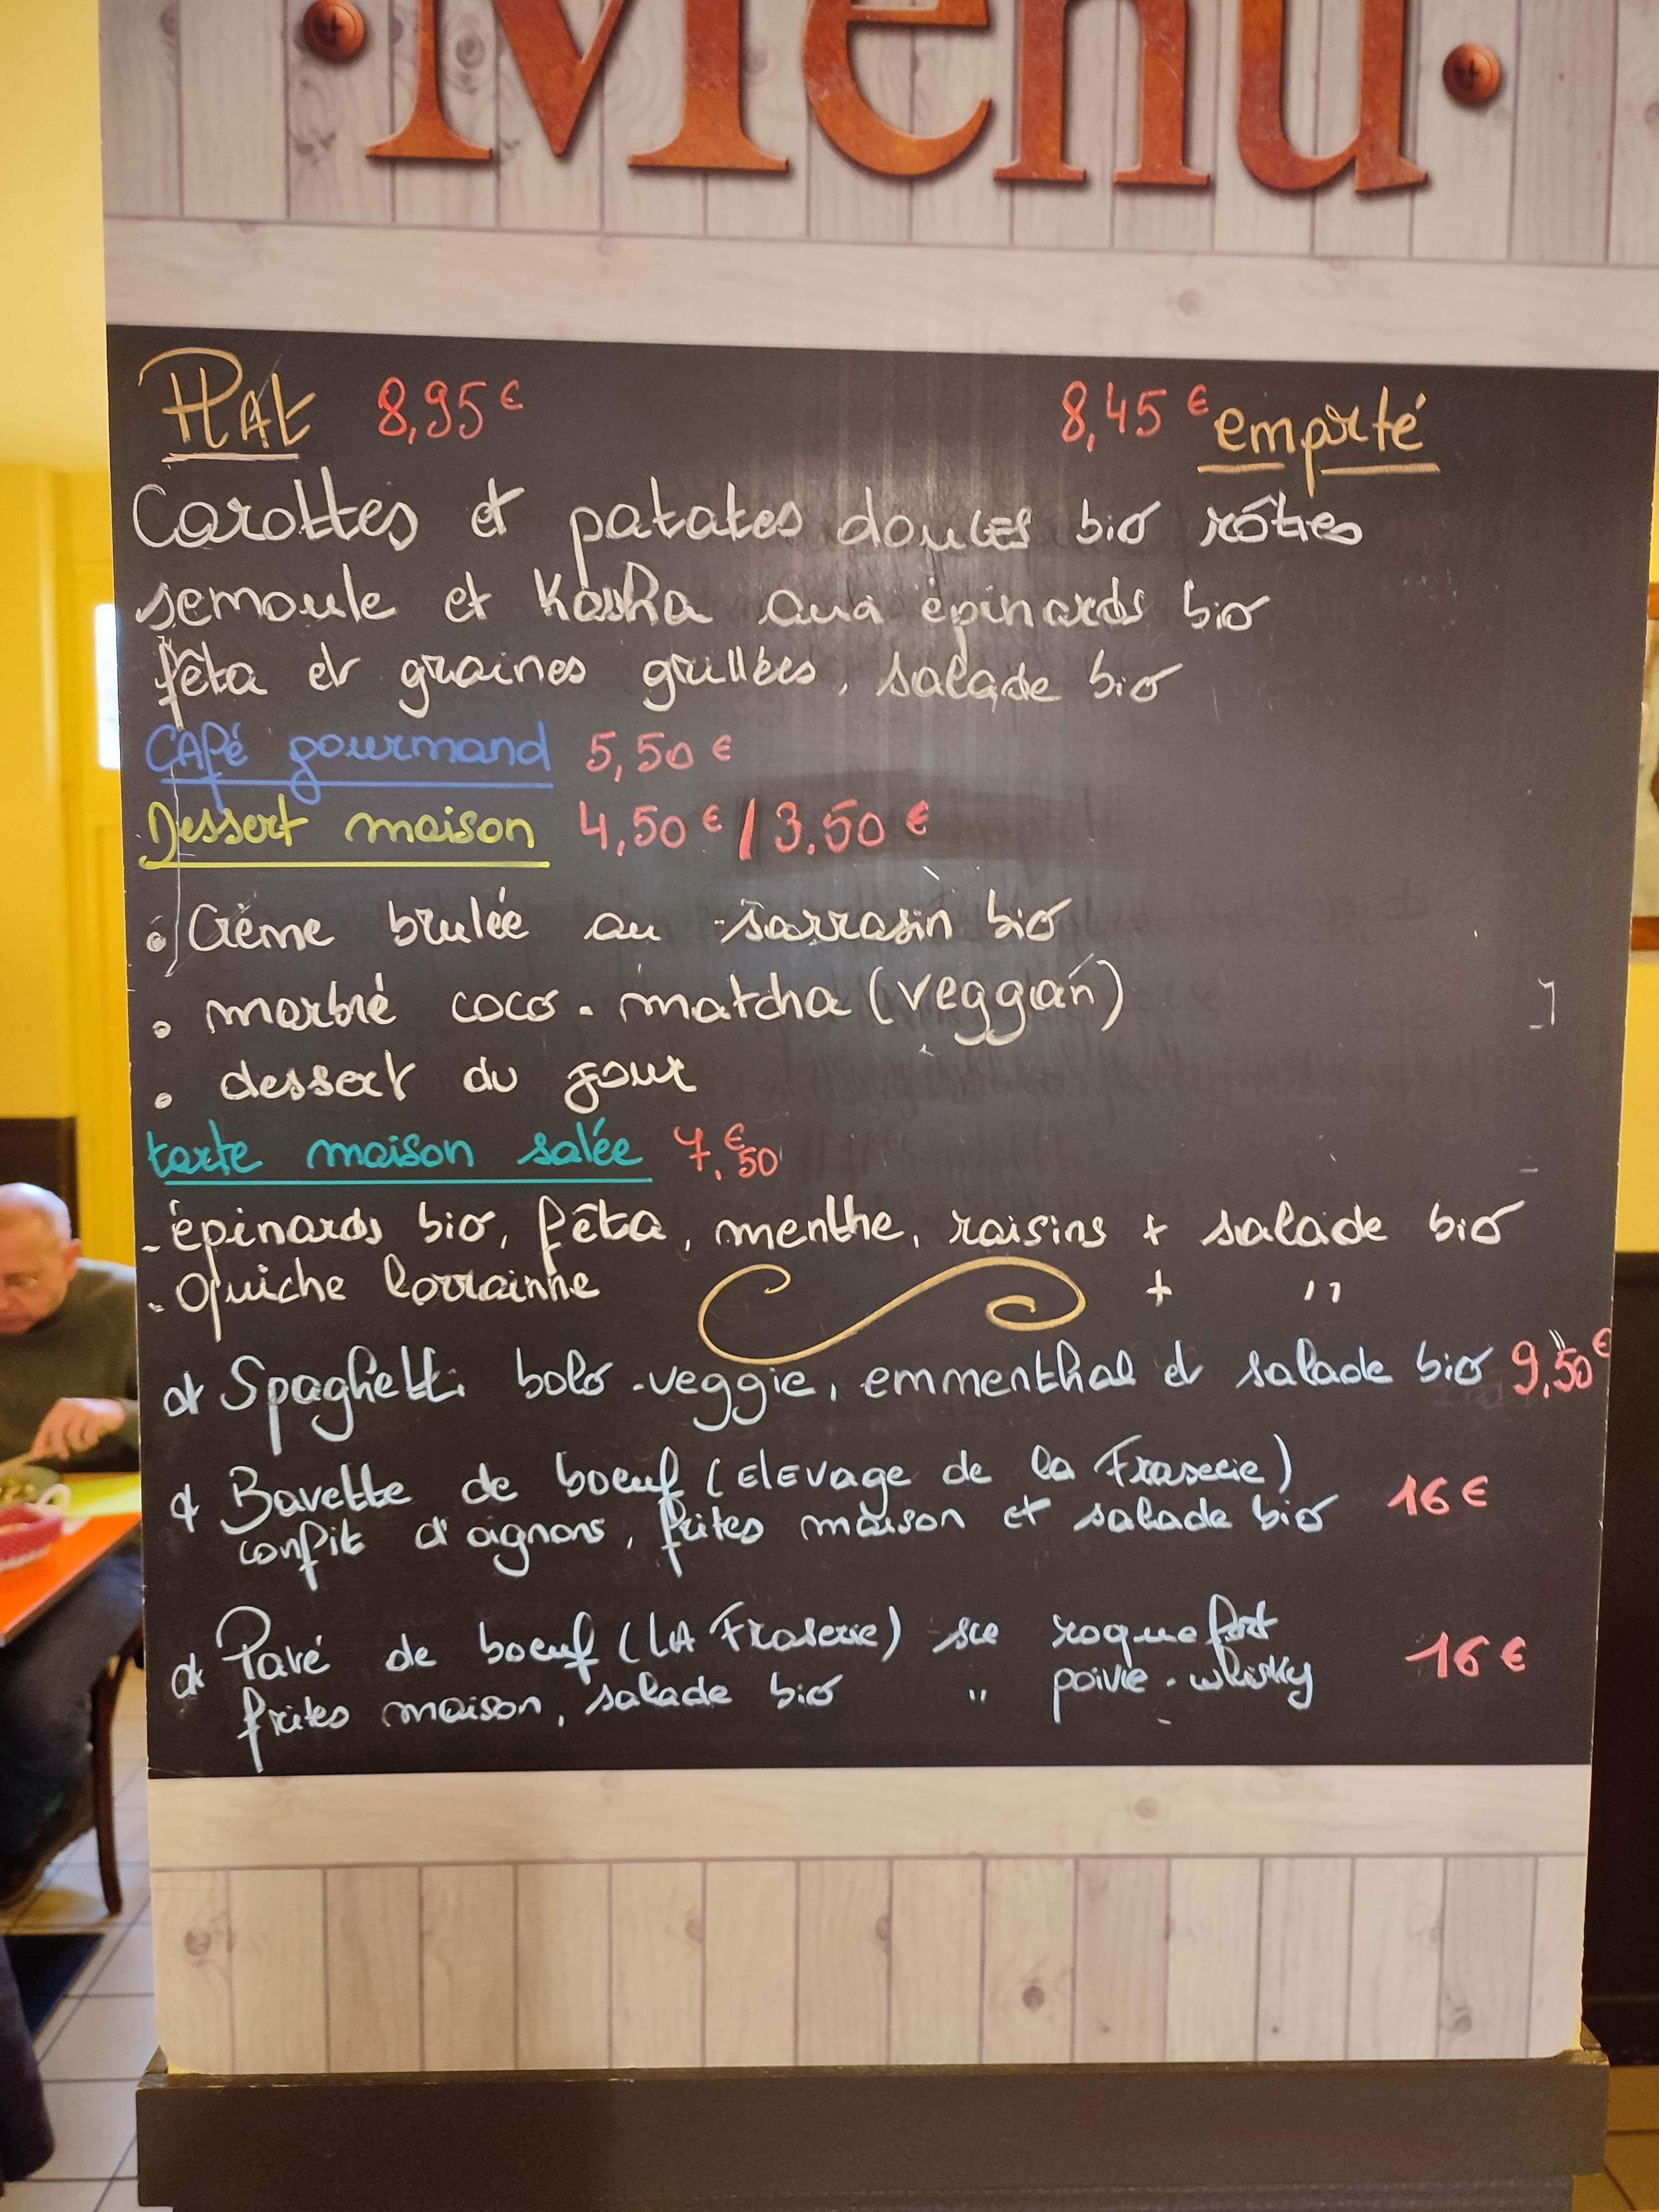 Menu
Plat 8,95€ 8,45€ emporté
Carottes et patates douces bio rôties
semoule et Kasha aux épinards bio
fêta et graines grillées, salade bio
Café gourmand 5,50€
Dessert maison 4,50€ / 3.50€
• Crème brulée au sarrasin bio
• marbré coco-matcha (veggan)
• dessert du jour
tarte maison salée 7,€50
- épinards bio, fêta, menthe, raisins + salade bio
- Quiche lorrainne + "
Spaghetti bolo-veggie, emmenthal et salade bio 9,50€
Bavette de boeuf (Elevage de la Fraserie)
confit d'oignons, frites maison et salade bio 16€
Pavé de boeuf (LA Fraserie) sce roquefort
frites maison, salade bio " poivre-whisky 16€